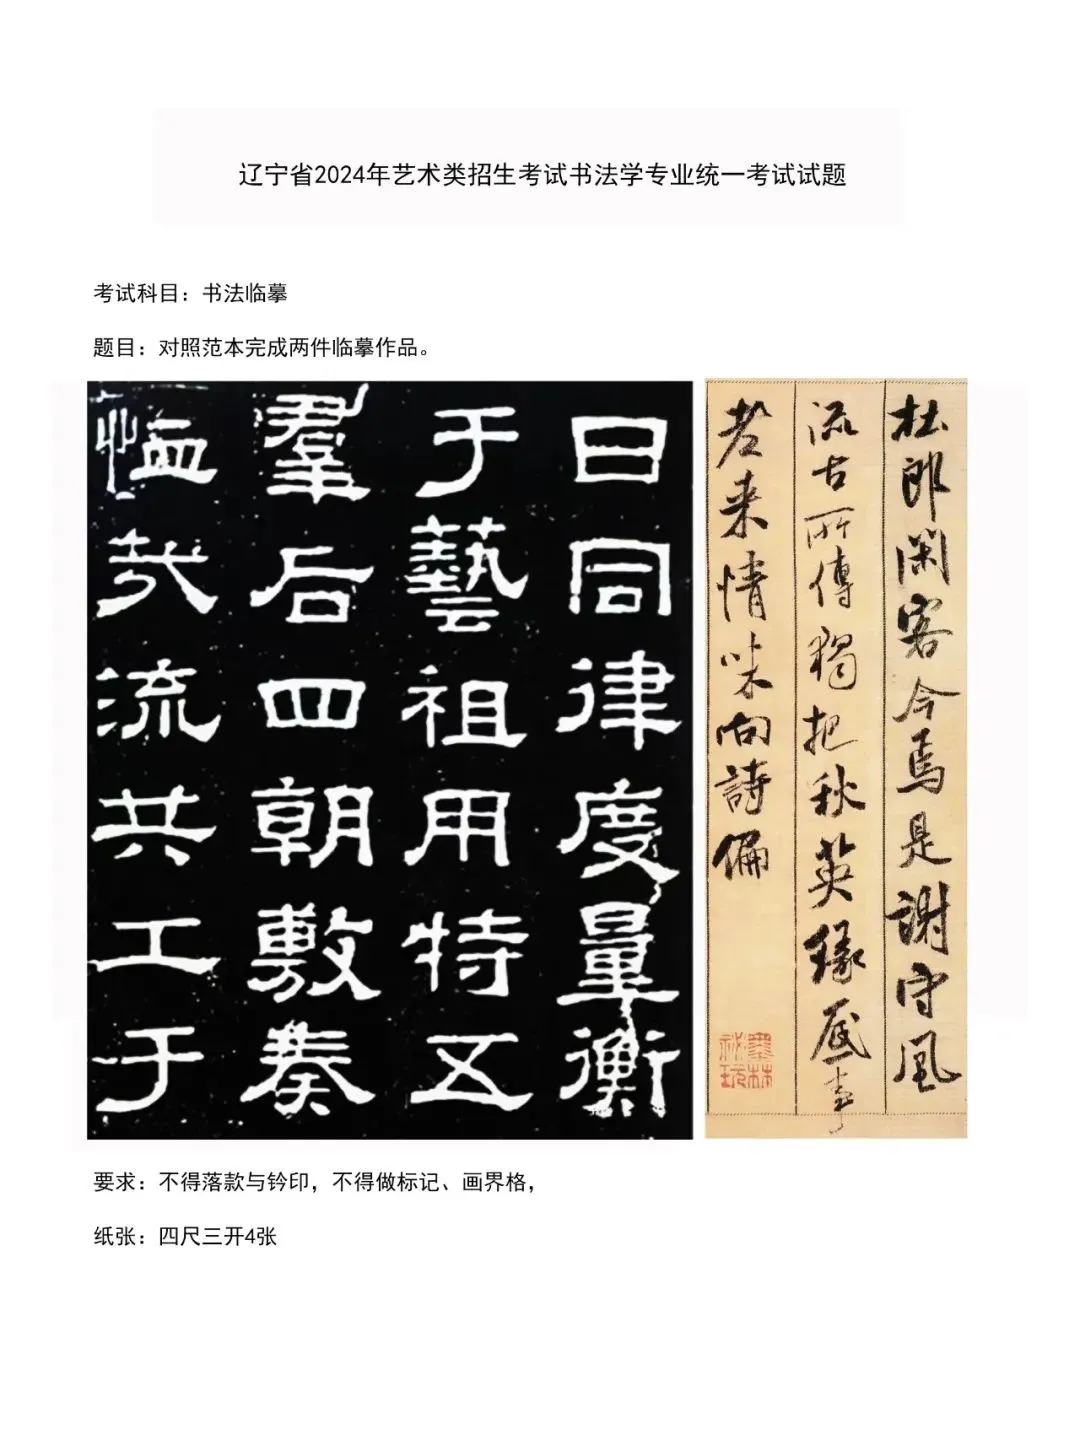 辽宁省2024年艺术类招生考试书法学专业统一考试试题
考试科目：书法临摹
题目：对照范本完成两件临摹作品。
日同律度量衡
于藝祖用特五
羣后四朝敷奏
恤哉流共工于
杜郎閑客今焉是謝守風
流古所傳獨把秋英緣底事
老来情味向詩偏
墨林
祕玩
要求：不得落款与钤印，不得做标记、画界格，
纸张：四尺三开4张